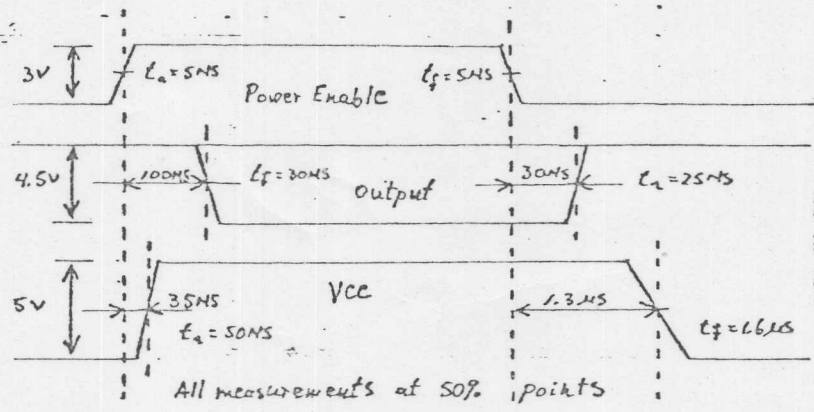 3V
tr = 5NS
Power Enable
tf = 5NS
4.5V
100NS
tf = 30NS
Output
30NS
tr = 25NS
5V
35NS
tr = 50NS
Vcc
1.3µS
tf = 1.6µS
All measurements at 50% points